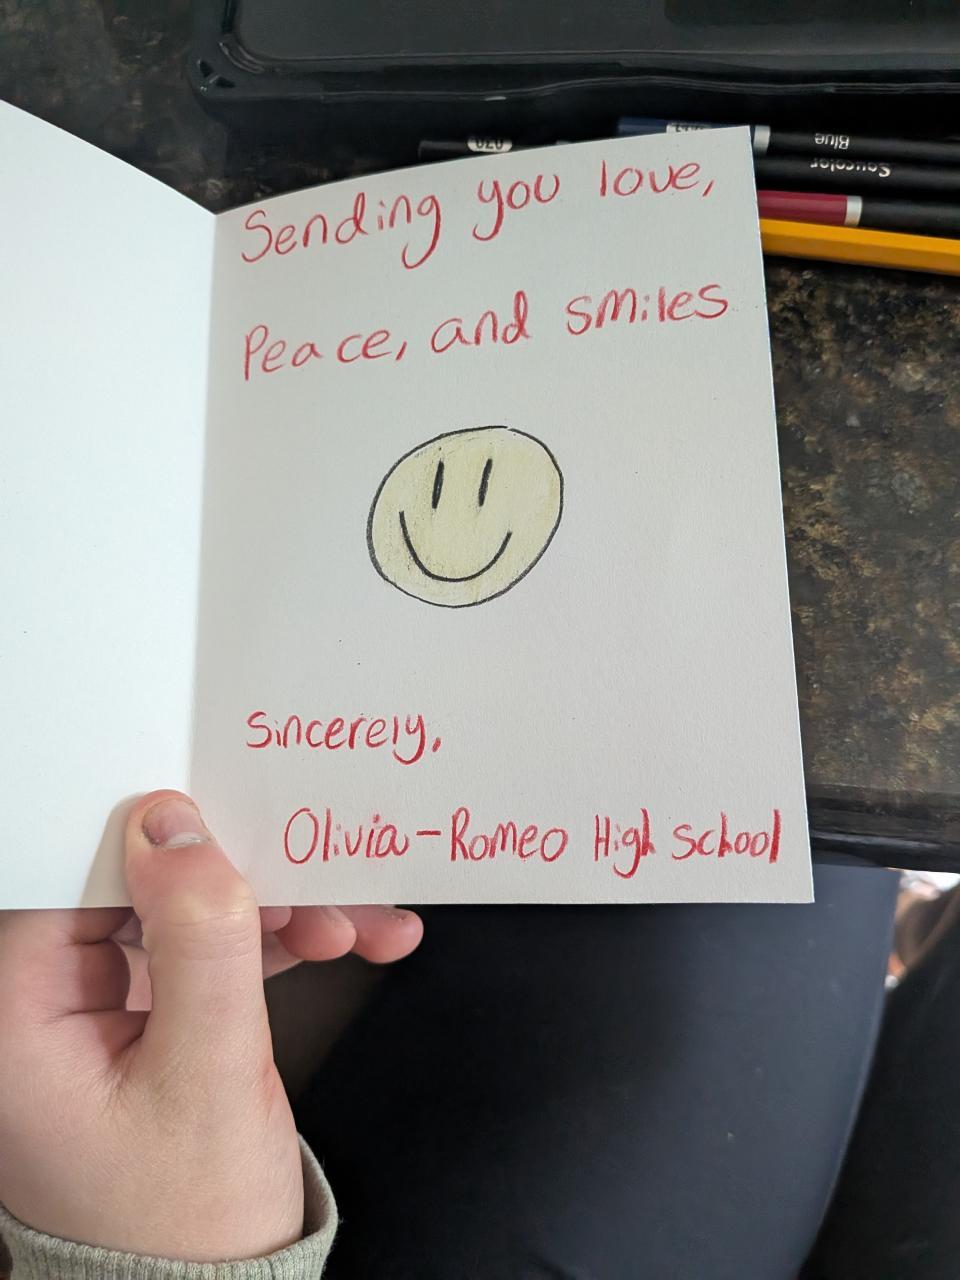 Sending you love,
Peace, and smiles
Sincerely,
Olivia-Romeo High School
Blue
070